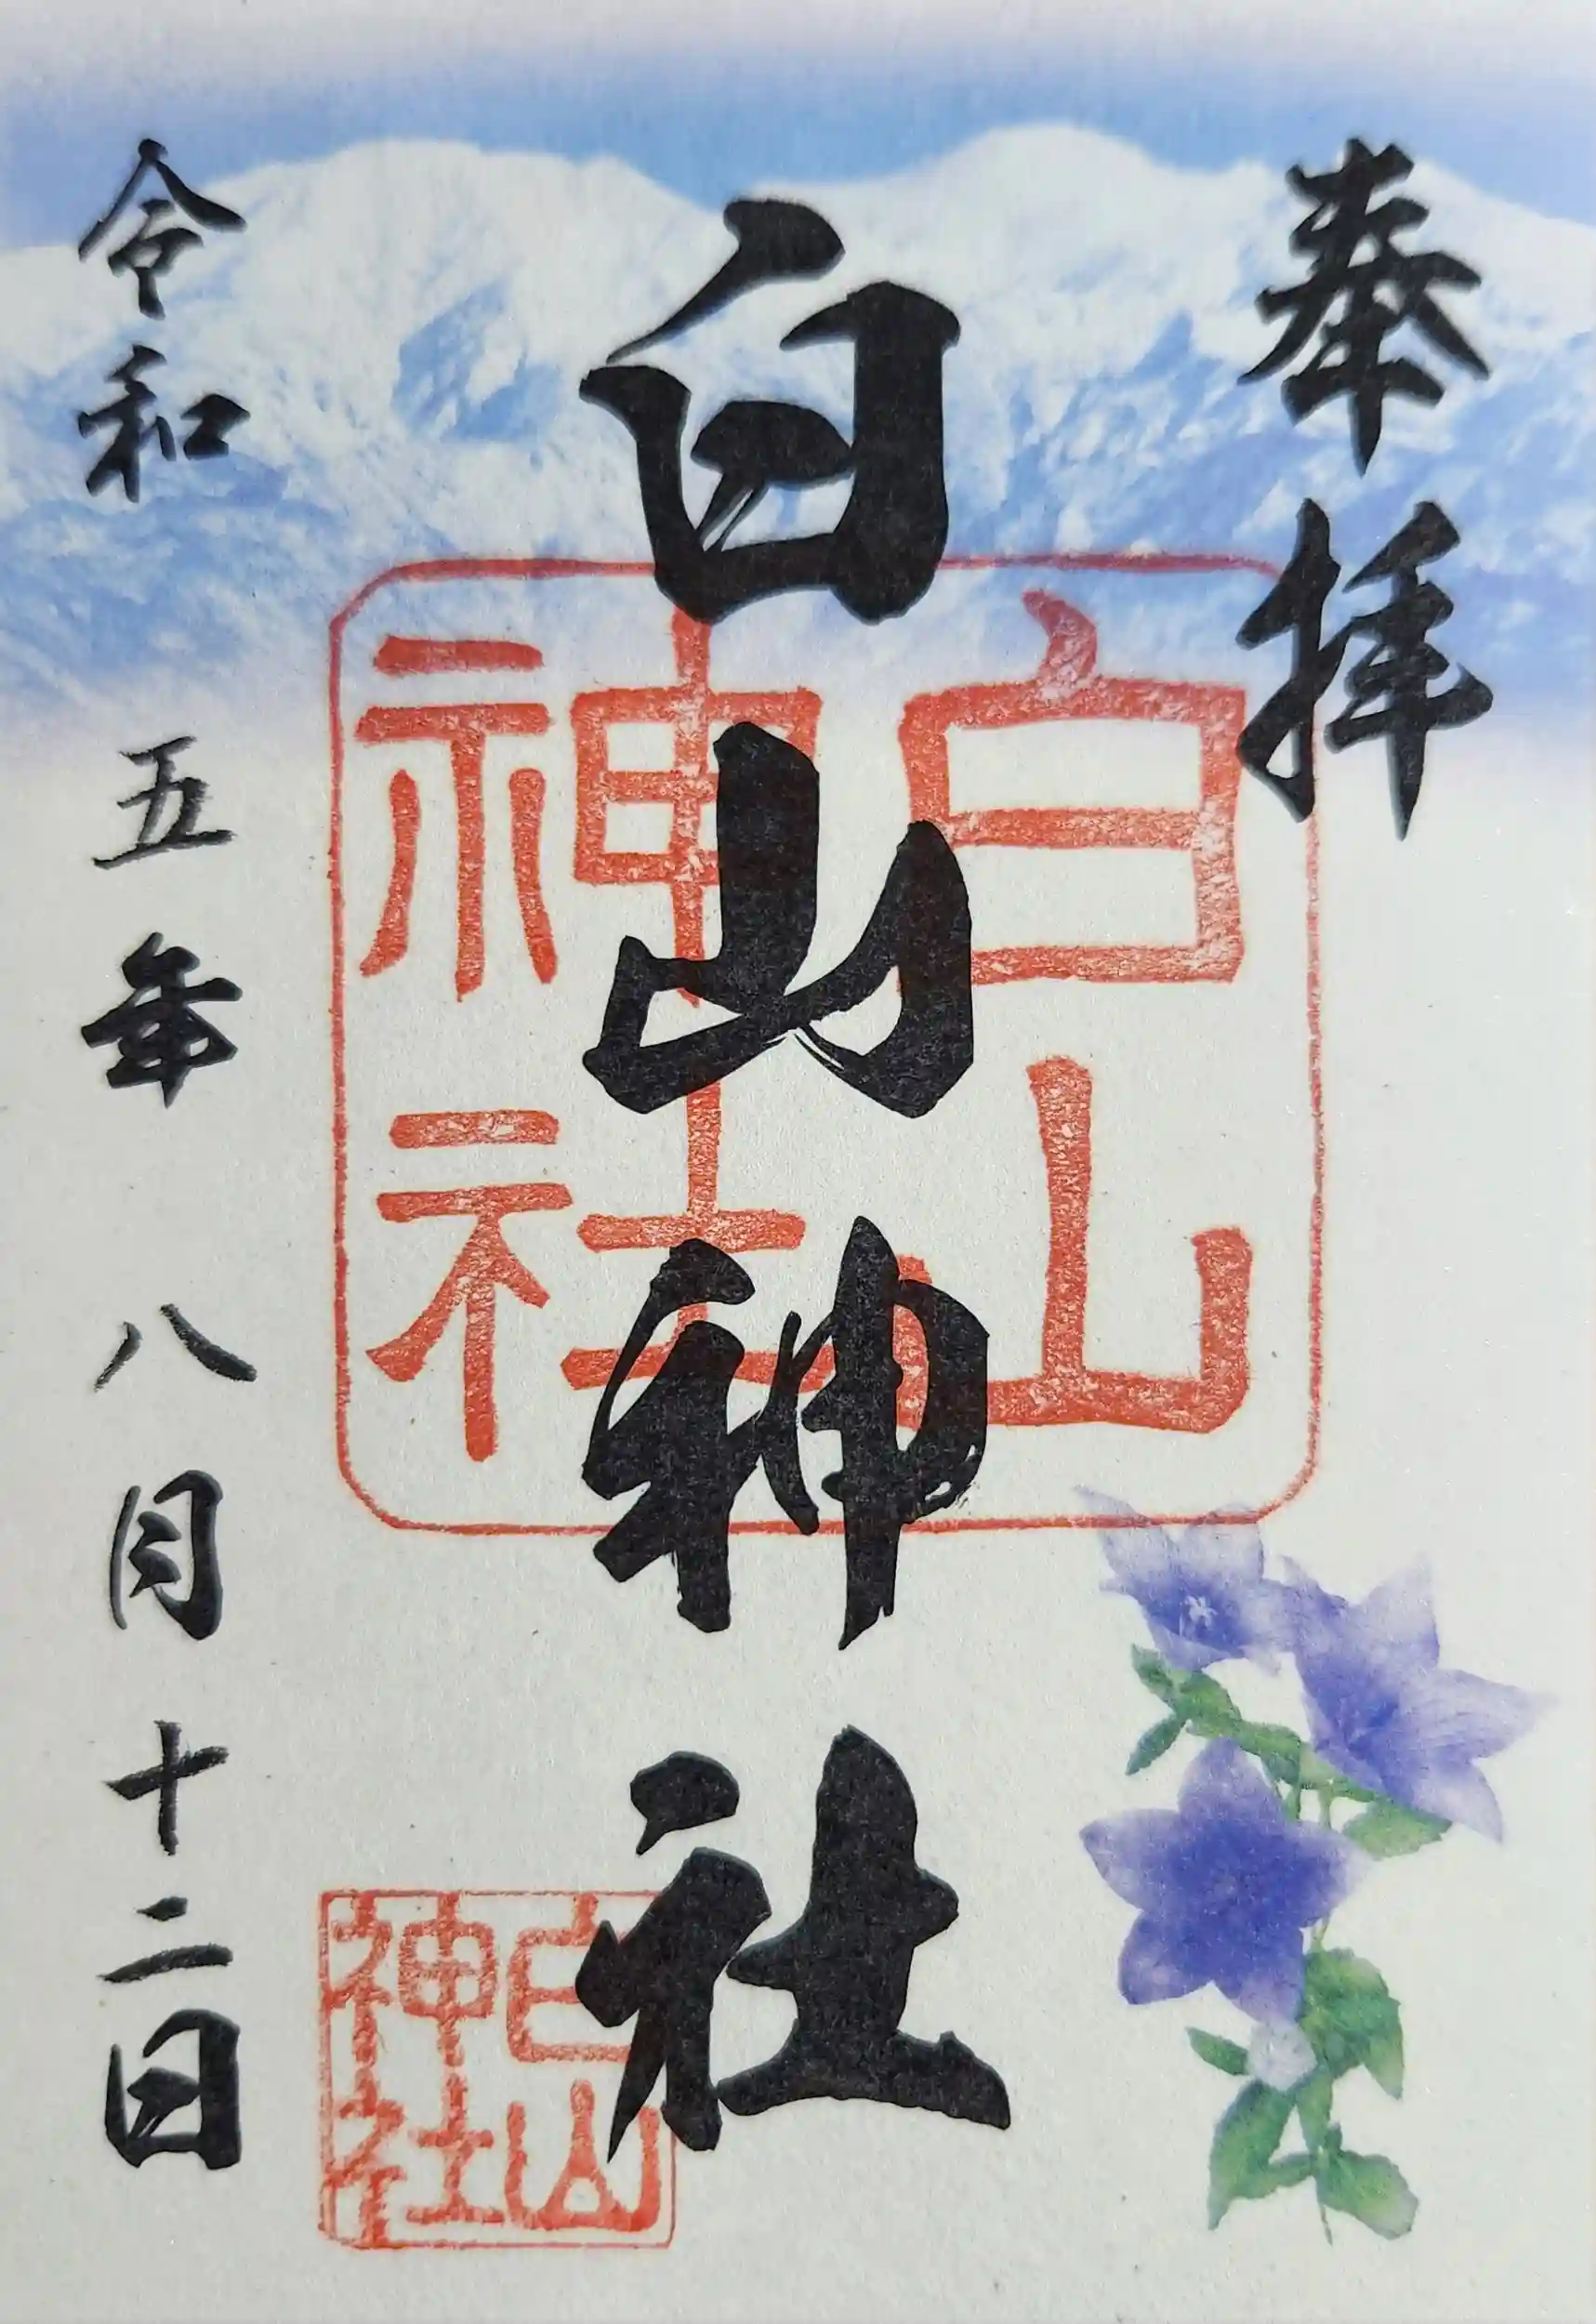 奉拝
白山神社
令和五年八月十二日
白山
神社
白山
神社